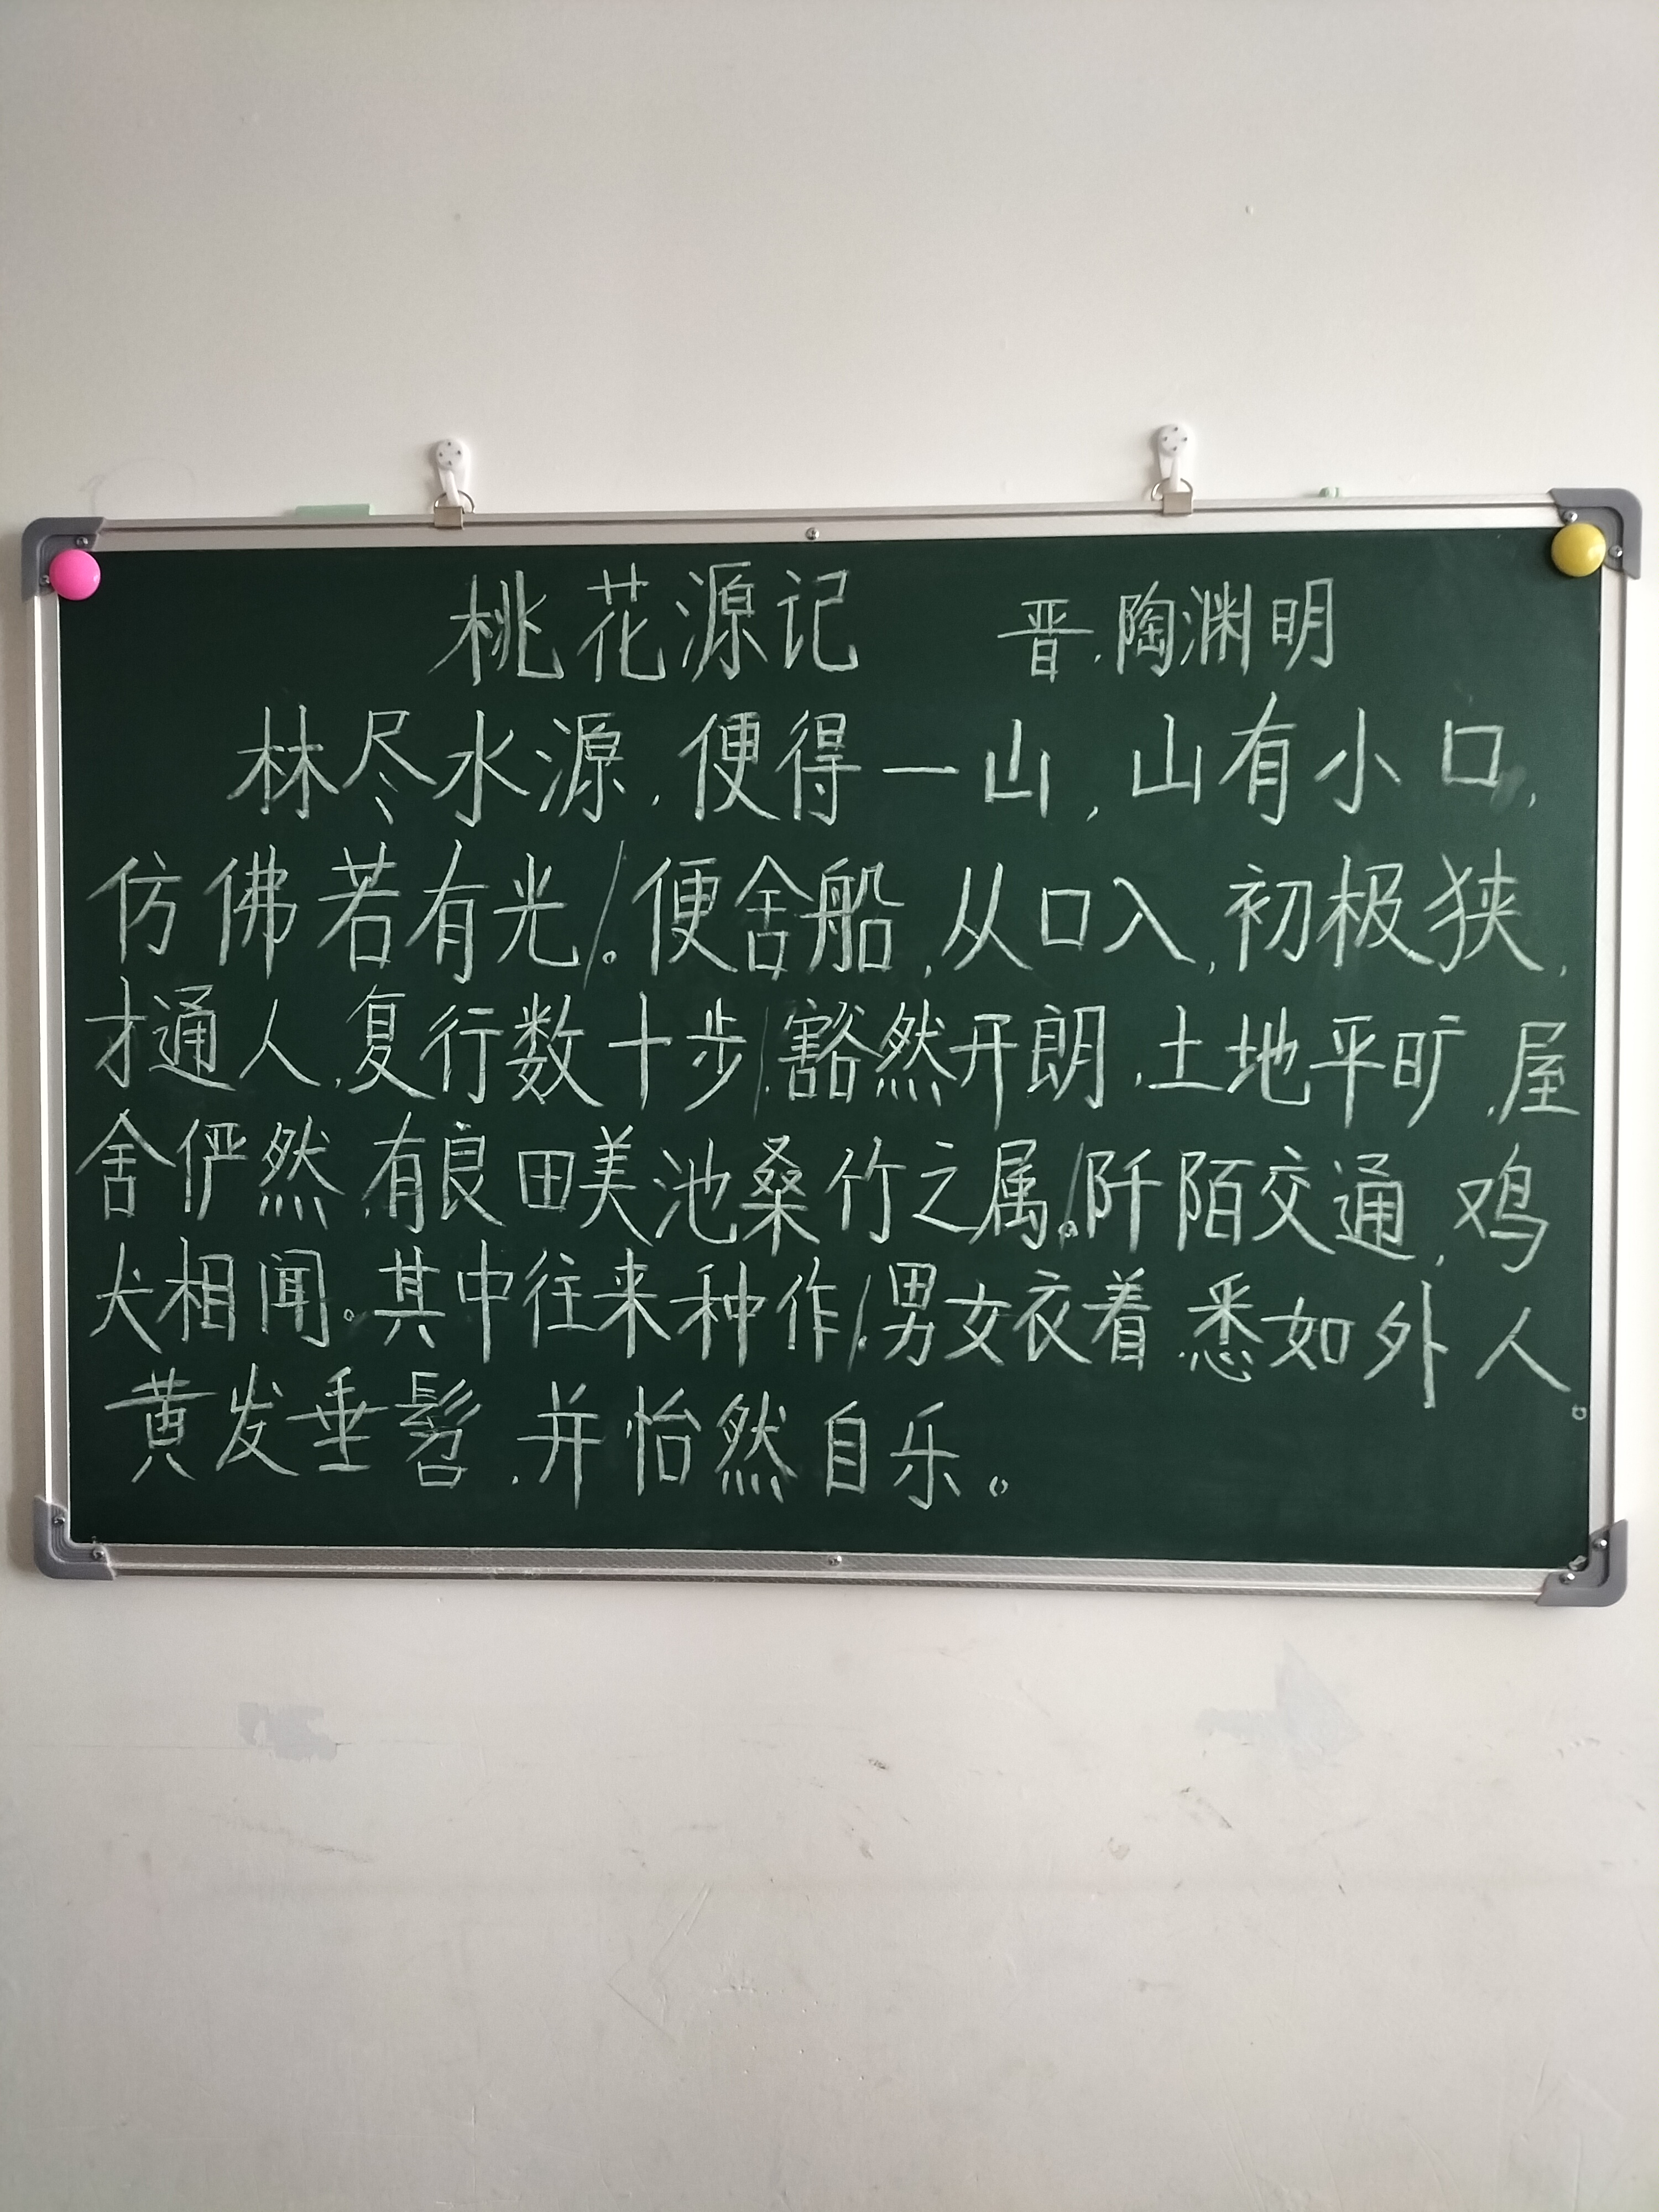 桃花源记 晋.陶渊明
林尽水源,便得一山,山有小口,
仿佛若有光/。便舍船,从口入,初极狭,
才通人,复行数十步/,豁然开朗,土地平旷,屋
舍俨然,有良田美池桑竹之属。/阡陌交通,鸡
犬相闻。其中往来种作/,男女衣着 悉如外人。
黄发垂髫,并怡然自乐。